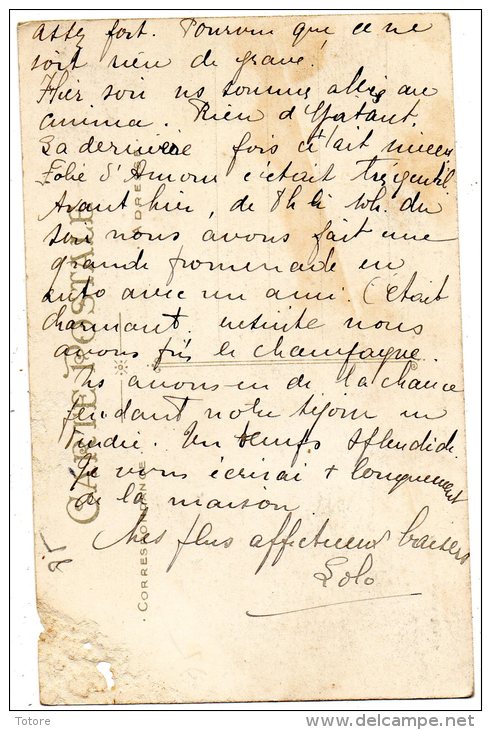 assez fort. Pourvu que ce ne
soit rien de grave!
Hier soir ns sommes allés au
cinéma. Rien d'épatant.
La dernière fois c'était mieux
Folie d'Amour c'était très gentil
Avant hier, de 8h à 10h. du
soir nous avons fait une
grande promenade en
auto avec un ami. C'était
charmant, ensuite nous
avons pris le champagne.
Ns avons eu de la chance
pendant notre séjour en
. Un temps splendide
Je vous écrirai + longuement
de la maison.
Mes plus affectueux baisers
Lolo
CARTE POSTALE
CORRESPONDANCE
ADRESSE
Totore
delcampe.net